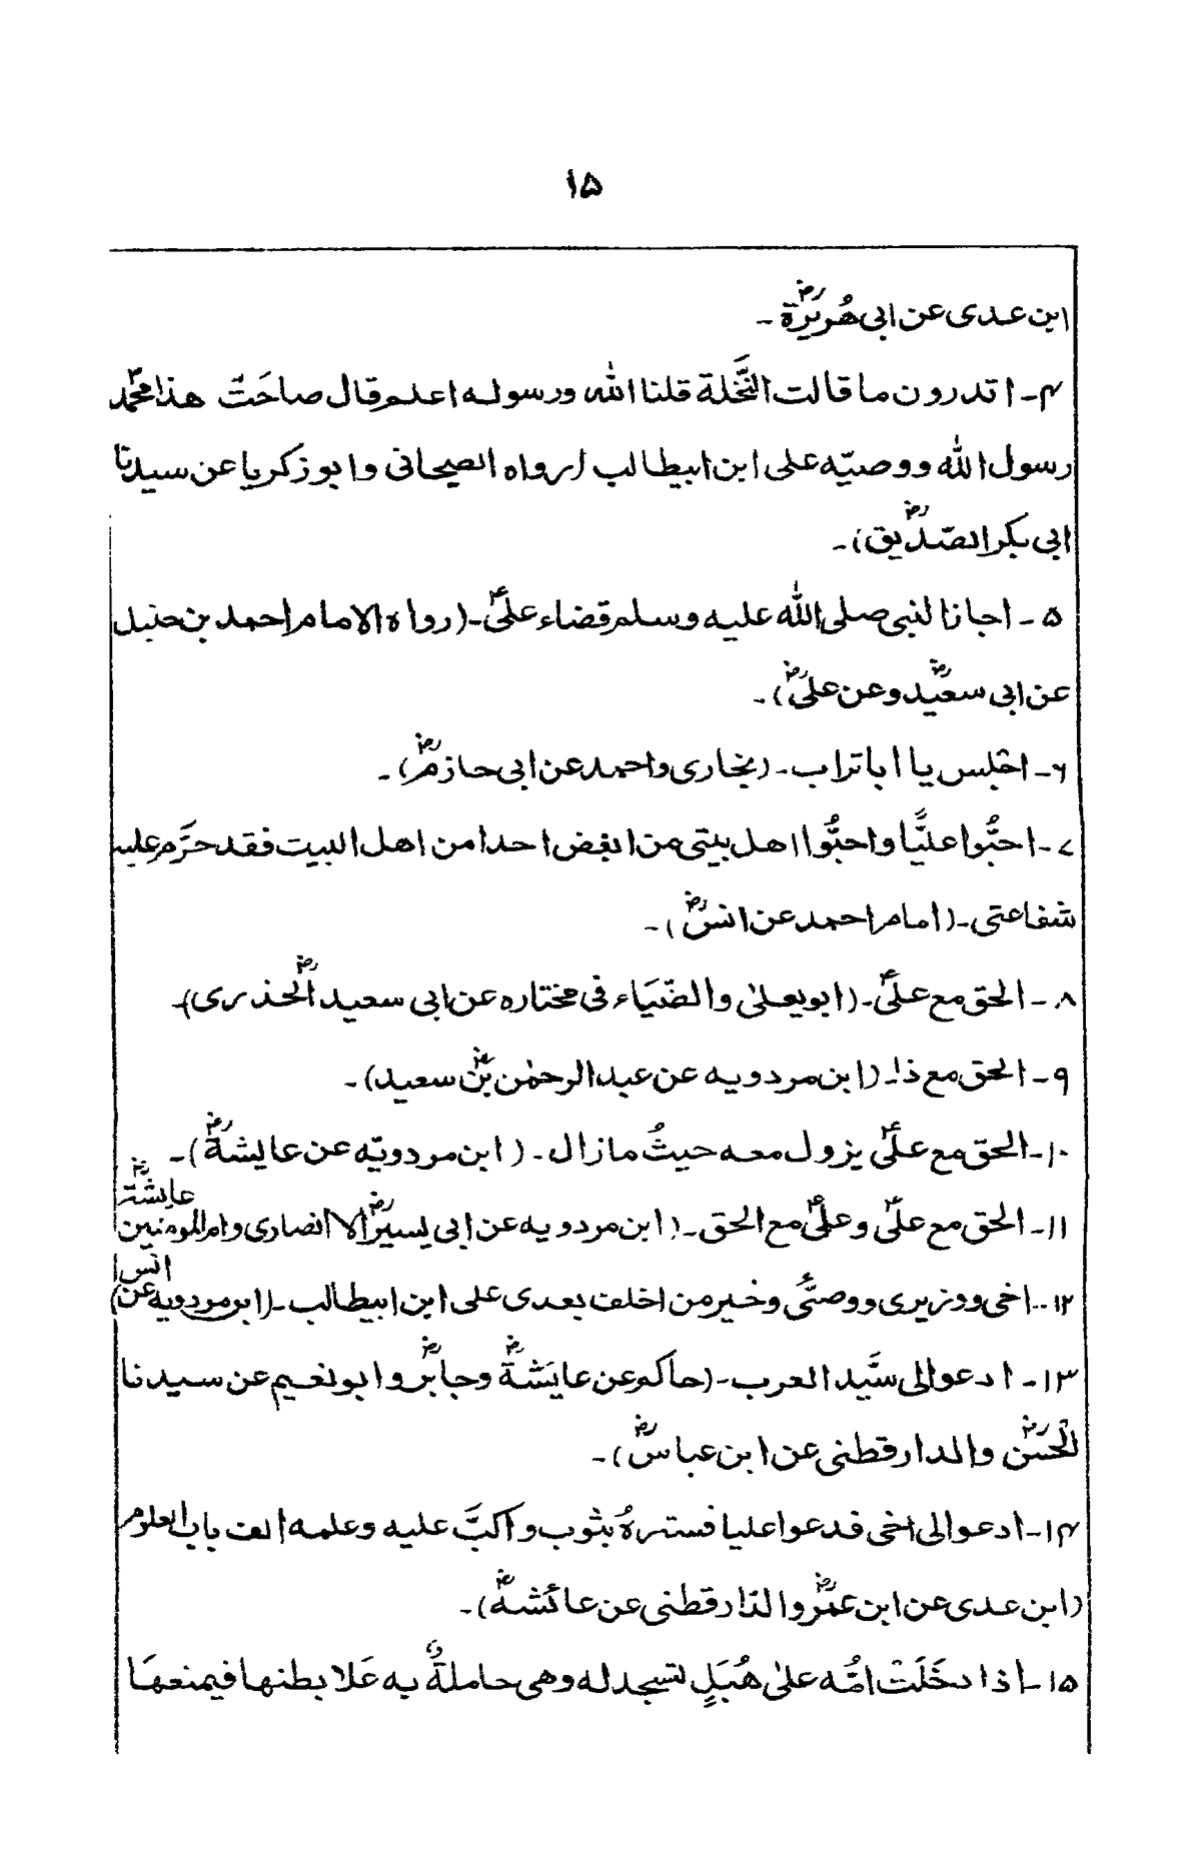 ۱۵
ابن عدی عن ابی ھُریرۃؓ ۔
۴۔ اتدرون ما قالت النَّخلة قلنا اللہ ورسولہ اعلم قال صاحَتْ ھذا محمّد
رسول اللہ ووصیّہ علی ابن ابیطالب (رواہ الصیحانی وابو زکریا عن سیدنا
ابی بکر الصّدیقؓ)۔
۵۔ اجاز النبی صلی اللہ علیہ وسلم قضاء علیؑ۔(رواہ الامام احمد بن حنبل
عن ابی سعیدؓ وعن علیؓ)۔
۶۔ اجلس یا ابا تراب۔ (بخاری واحمد عن ابی حازمؓ)۔
۷۔ احبُّوا علیًّا واحبُّوا اھل بیتی من ابغض احدا من اھل البیت فقد حرَّم علیہ
شفاعتی۔(امام احمد عن انسؓ)۔
۸۔ الحق مع علیؑ۔(ابو یعلیٰ والضّیَاء فی مختارہ عن ابی سعید الخذریؓ)۔
۹۔ الحق مع ذا۔ (ابن مردویہ عن عبد الرحمٰن بنؓ سعید)۔
۱۰۔ الحق مع علیؑ یزول معہ حیثُ مازال۔ (ابن مردویّہ عن عایشةؓ)۔
۱۱۔ الحق مع علیؑ وعلیؑ مع الحق۔(ابن مردویہ عن ابی یسیرؓ الانصاری وام المومنین عایشةؓ
۱۲۔ اخی ووزیری ووصیّی وخیر من اخلف بعدی علی ابن ابیطالب۔(ابن مردویہ عن انس)
۱۳۔ ادعوا لی سیَّد العرب۔(حاکم عن عایَشةؓ وجابرؓ وابو نعیم عن سیدنا
الحَسنؓ والدارقطنی عن ابن عباسؓ)۔
۱۴۔ ادعوا لی اخی فدعوا علیا فسترہُ بثوب واکبَّ علیہ وعلمہ الف باب العلوم
(ابن عدی عن ابن عمرؓ والدّارقطنی عن عائشہؓ)۔
۱۵۔ اذا دخَلَتْ امُّہ علیٰ ھُبَلٍ لتسجد لہ وھی حاملةٌ بہ عَلا بطنھا فیمنعھَا